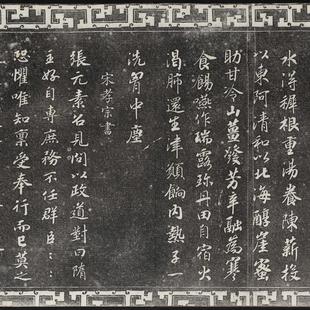 水得穉根重湯養陳薪投
以東阿清和以北海醇崖蜜
助甘冷山薑發芳辛融為寒
食餳嚥作瑞露珍丹田自宿火
渴肺還生津願餉內熱子一
洗胷中塵
宋孝宗書
張元素召見問以政道對曰隋
主好自專庶務不任群臣：：
恐懼唯知稟受奉行而已莫之